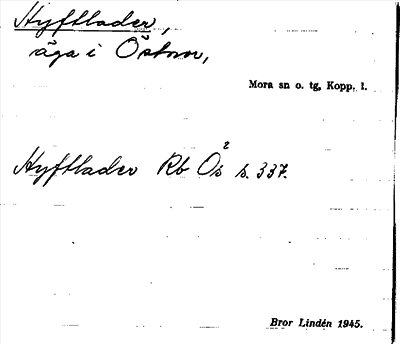 Hyftlader,
äga i Östnor,
Mora sn o. tg, Kopp. l.
Hyftlader Rb Ös² s. 337.
Bror Lindén 1945.